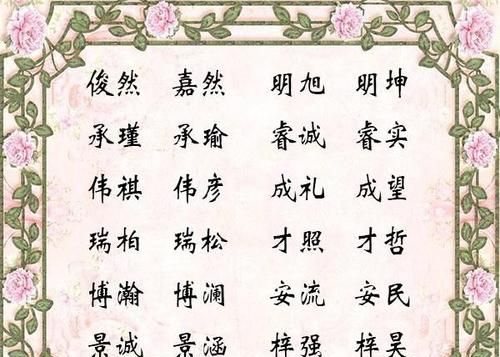 俊然 嘉然 明旭 明坤
承瑾 承瑜 睿诚 睿实
伟祺 伟彦 成礼 成望
瑞柏 瑞松 才照 才哲
博瀚 博澜 安流 安民
景诚 景涵 梓强 梓昊